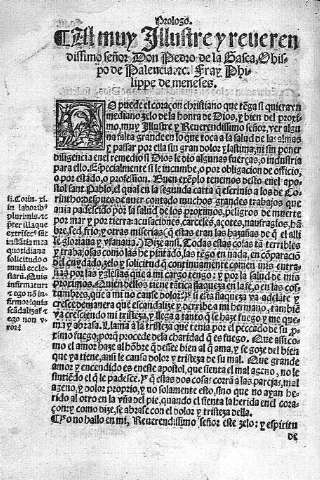 Prologo.
¶Al muy Illustre y reueren
dissimo señor Don Pedro de la Gasca, Obis
po de Palencia.&c. Fray Phi
lippe de meneses.
NO puede el coraçon christiano que tēga si quiera vn
mediano zelo de la honra de Dios, y bien del proxi
mo, muy Illustre y Reuerendissimo señor, ver algu
na falta grande en lo que toca a la salud de las almas
y passar por ella sin gran dolor y lastima, ni sin poner
diligencia en el remedio si Dios le dio algunas fuerças, o industria
para ello. Especialmente si le incumbe, o por obligacion de officio,
o por estado o profession. Buen exēplo tenemos desto en el apo
stol sant Pablo, el qual en la segunda carta q̄ escriuio a los de Co
rintho, despues de auer contado muchos grandes trabajos que
auia padescido por la salud de los proximos, peligros de muerte
por mar y por tierra, acusaciones, carceles, açotes, naufragios, hā
bre, sed, frio, y otras miserias (q̄ estas eran las hazañas de q̄ el alli
se gloriaua y vfanaua) Dize ansi. Todas estas cosas tā terribles
y trabajosas como las he pintado, las tēgo en nada, en cōparaciō
del cuydado, zelo y solicitud q̄ continuamente comen mis entra
ñas por las yglesias que a mi cargo tengo: y por la salud de mis
proximos. Quien dellos tiene tātica flaqueza en la fe, o en las co
stumbres, que a mi no cause dolor?
cresce de manera que escandalize y derribe a mi hermano, tambiē
va cresciendo mi tristeza, y llega a tanto q̄ se haze fuego y me que
ma y abrasa. Llama a la tristeza que tenia por el peccado de su pro
ximo fuego, porq̄ procede de la charidad q̄ es fuego. Que assi co
mo el amor haze al hōbre q̄ dessee bien al q̄ ama, y se goze del bien
que ya tiene, ansi le causa dolor y tristeza de su mal. Que grande
amor y encendido es este apostol, que sienta el mal ageno, no le
sintiēdo el q̄ le padesce.
ageno, y dolor proprio, y no solamente esto, sino que no ayan he
rido al otro en la vña del pie, quando el sienta la herida en el cora
çon: y como dize, se abrase con el dolor y tristeza della.
¶Yo no hallo en mi, Reuerendissimo señor este zelo: y espiritu
de
2. Corin. xi.
in laborib⁹
plurimis. &c.
preter illa que
extrinsec⁹ sūt
instātia mea
quotidiana
solicitudo o
mniū eccle
siarū. Quis
infirmatur
& ego nō in
firmor? quis
scādalizat̄ &
ego non v
ror?